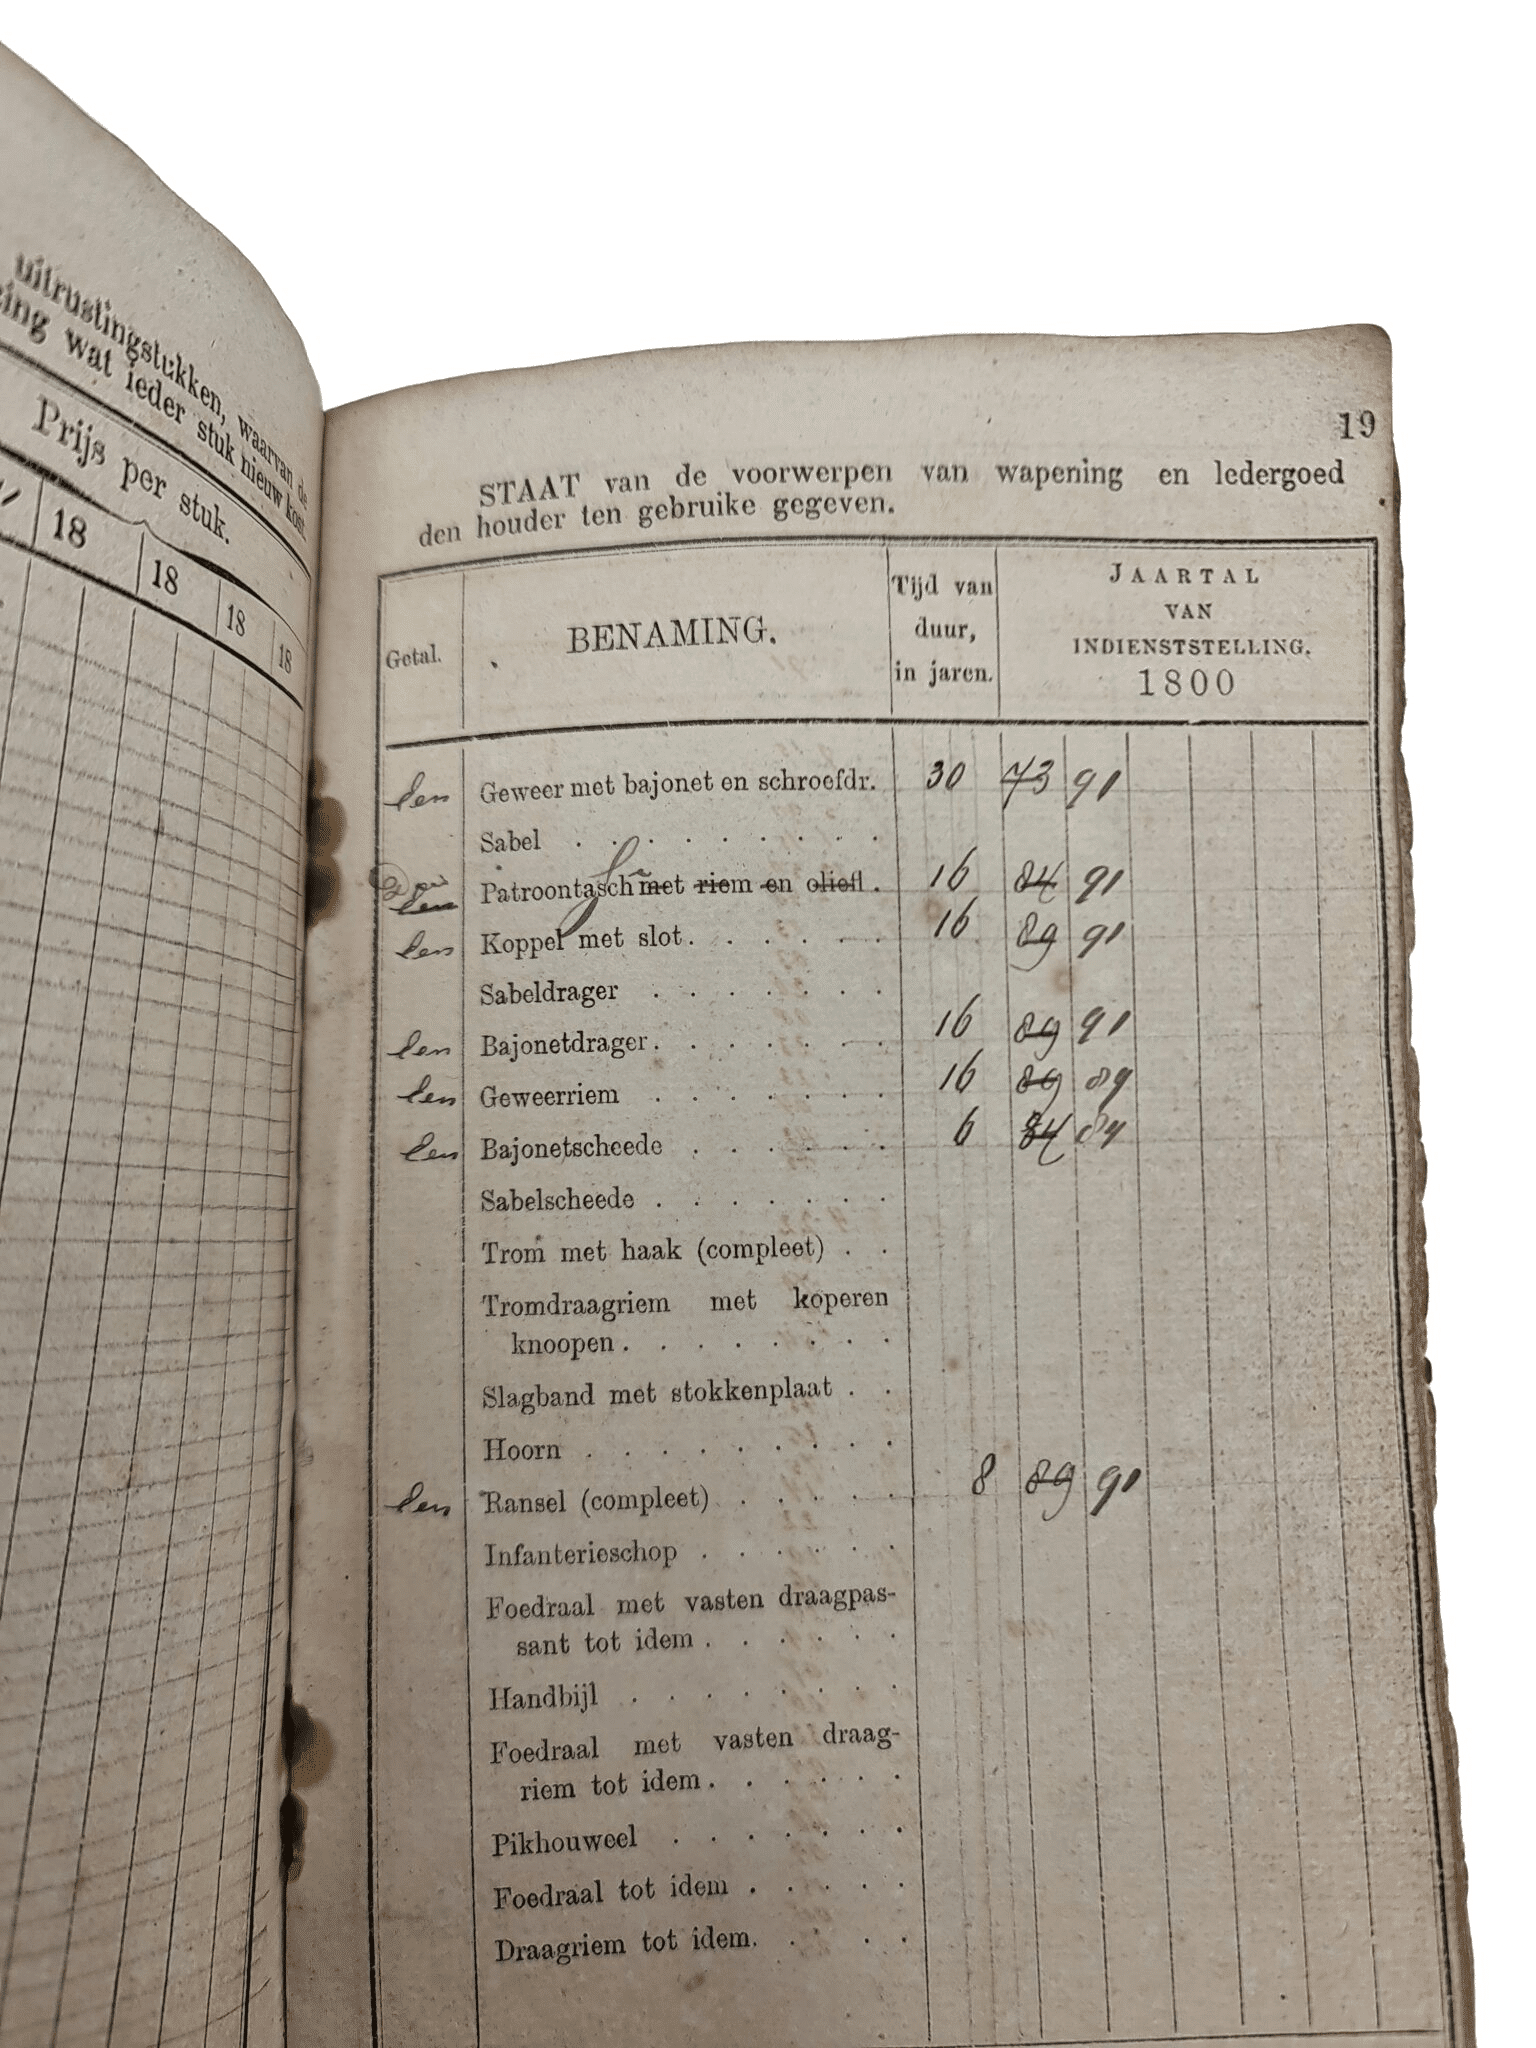 uitrustingstukken, waarvan de
ing wat ieder stuk nieuw kost.
Prijs per stuk.
18 18 18 18
19
STAAT van de voorwerpen van wapening en ledergoed
den houder ten gebruike gegeven.
Getal.
BENAMING.
Tijd van
duur,
in jaren.
JAARTAL
VAN
INDIENSTSTELLING.
1800
een Geweer met bajonet en schroefdr. 30 73 91
Sabel
een Patroontasch met riem en oliefl. 16 84 91
een Koppel met slot. 16 89 91
Sabeldrager
een Bajonetdrager. 16 89 91
een Geweerriem 16 89 89
een Bajonetscheede 6 84 84
Sabelscheede
Trom met haak (compleet)
Tromdraagriem met koperen
knoopen.
Slagband met stokkenplaat
Hoorn
een Ransel (compleet) 8 89 91
Infanterieschop
Foedraal met vasten draagpas-
sant tot idem
Handbijl
Foedraal met vasten draag-
riem tot idem.
Pikhouweel
Foedraal tot idem
Draagriem tot idem.